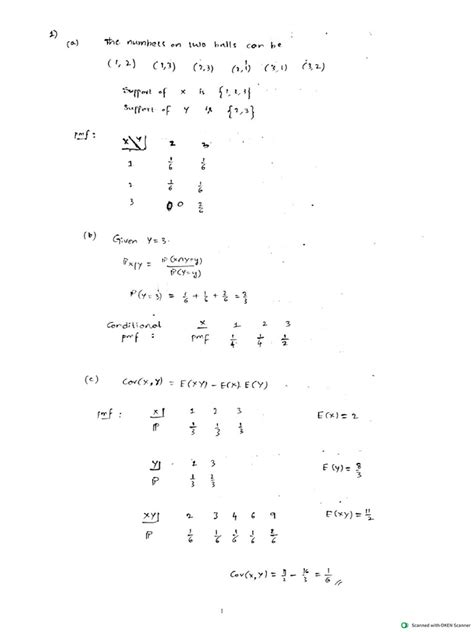 1)
(a) The numbers on two balls can be
(1, 2) (1,3) (2,3) (2,1) (3,1) (3,2)
Support of X is {1,2,3}
Support of Y is {2,3}
pmf :
X\Y 2 3
1 1/6 1/6
2 1/6 1/6
3 0 2/6
(b) Given Y=3.
P(X∩Y=y)
P(Y=y)
P(Y=3) = 1/6 + 1/6 + 2/6 = 2/3
Conditional pmf :
X 1 2 3
pmf 1/4 1/4 1/2
(c) Cov(X,Y) = E(XY) - E(X).E(Y)
pmf : X 1 2 3
P 1/3 1/3 1/3
E(X) = 2
Y 2 3
P 1/3 2/3
E(Y) = 8/3
XY 2 3 4 6 9
P 1/6 1/6 1/6 1/6 2/6
E(XY) = 11/2
Cov(X,Y) = 11/2 - 16/3 = 1/6
1
Scanned with OKEN Scanner